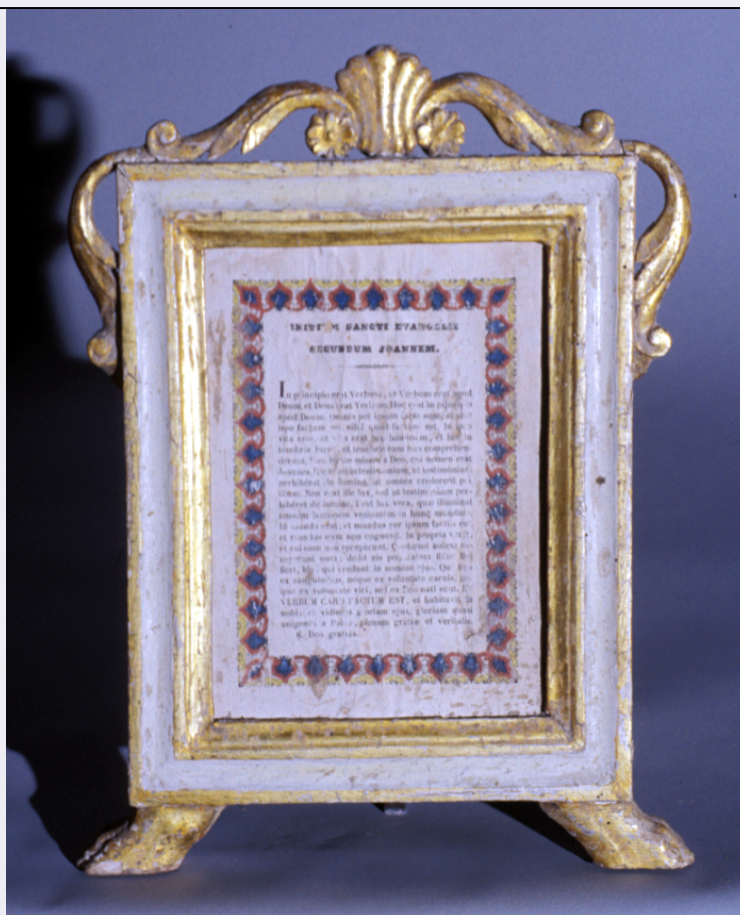 INITIUM SANCTI EVANGELII
SECUNDUM JOANNEM.
In principio erat Verbum, et Verbum erat apud
Deum, et Deus erat Verbum. Hoc erat in principio
apud Deum. Omnia per ipsum facta sunt, et sine
ipso factum est nihil quod factum est. In ipso
vita erat, et vita erat lux hominum, et lux in
tenebris lucet, et tenebræ eam non comprehen-
derunt. Fuit homo missus a Deo, cui nomen erat
Joannes. Hic venit in testimonium, ut testimonium
perhibéret de lumine, ut omnes crederent per
illum. Non erat ille lux, sed ut testimonium per-
hibéret de lumine. Erat lux vera, quæ illuminat
omnem hominem venientem in hunc mundum.
In mundo erat, et mundus per ipsum factus est,
et mundus eum non cognovit. In propria venit,
et sui eum non receperunt. Quotquot autem re-
ceperunt eum, dedit eis potestatem filios Dei
fieri, his, qui credunt in nomine ejus. Qui non
ex sanguinibus, neque ex voluntate carnis, ne-
que ex voluntate viri, sed ex Deo nati sunt. ET
VERBUM CARO FACTUM EST, et habitavit in
nobis: et vidimus gloriam ejus, gloriam quasi
unigeniti a Patre, plenum gratiæ et veritatis.
℟. Deo gratias.